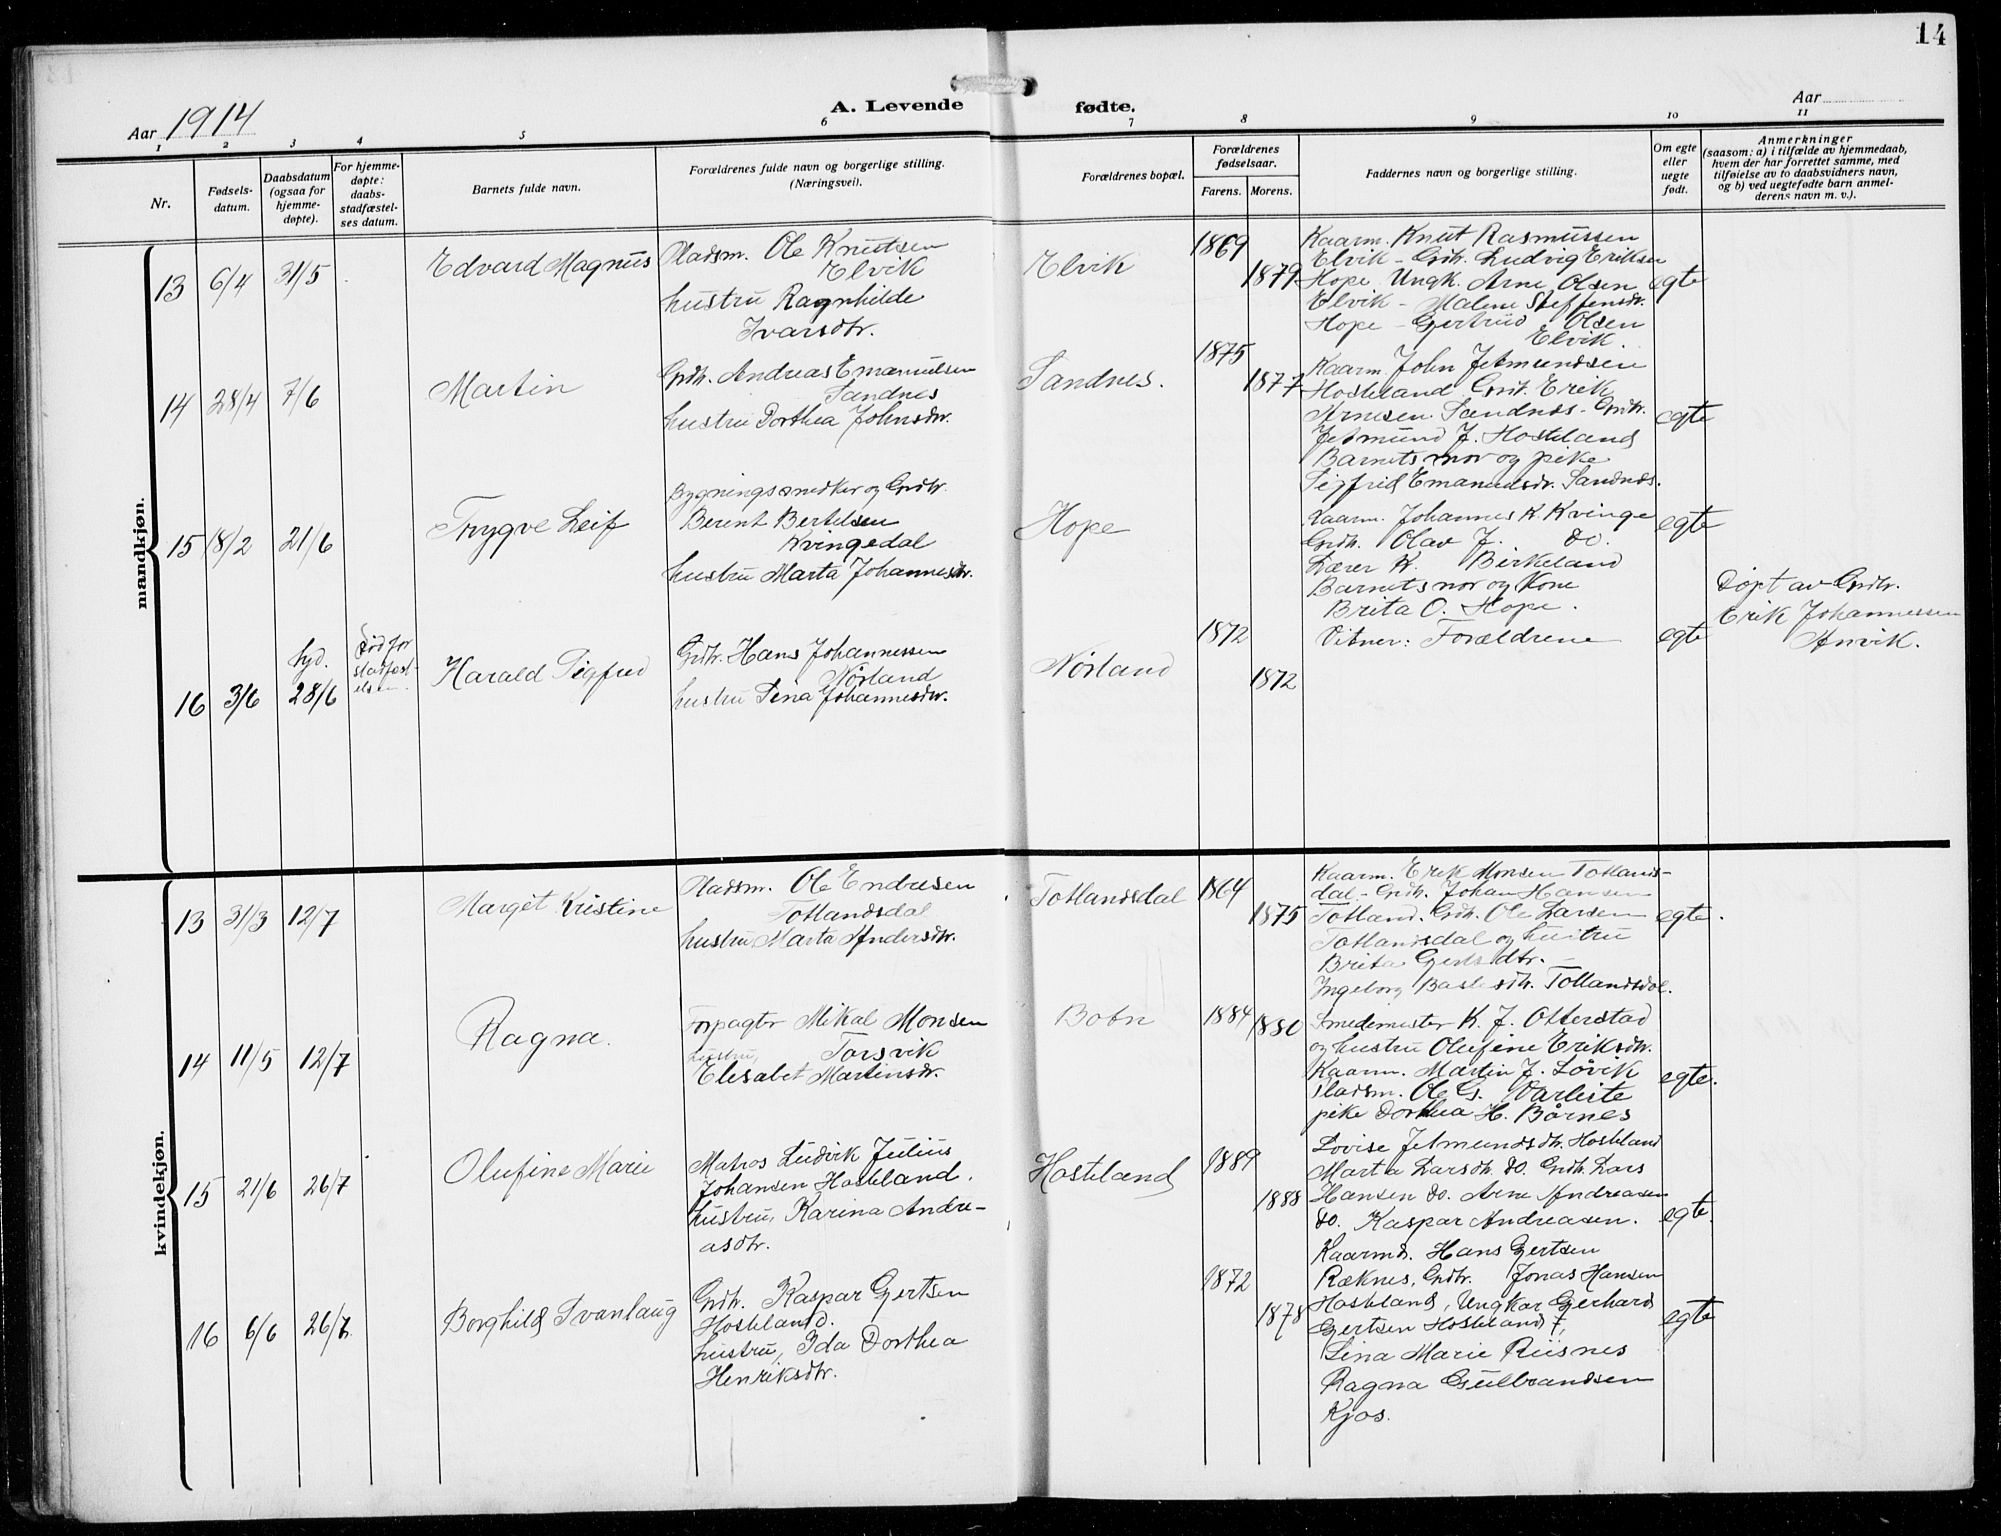 14
Aar 1914
A. Levende fødte.
Aar
1 2 3 4 5 6 7 8 9 10 11
Nr.
Fødsels-
datum.
Daabsdatum
(ogsaa for
hjemme-
døpte).
For hjemme-
døpte:
daabs
stadfæstel-
ses datum.
Barnets fulde navn.
Forældrenes fulde navn og borgerlige stilling.
(Næringsvei).
Forældrenes bopæl.
Forældrenes
fødselsaar.
Farens. Morens.
Faddernes navn og borgerlige stilling.
Om egte
eller
uegte
født.
Anmerkninger
(saasom: a) i tilfælde av hjemmedaab,
hvem der har forrettet samme, med
tilføielse av to daabsvidners navn,
og b) ved uegtefødte barn anmel-
derens navn m. v.).
mandkjøn.
13 6/4 31/5
Edvard Magnus
Pladsm. Ole Knutsen
Elvik
hustru Ragnhilde
Ivarsdtr.
Elvik
1869
1879
Kaarm. Knut Rasmussen
Elvik - Grdt. Ludvig Eriksen
Hope. Ungk. Arne Olsen
Elvik - Malene Steffensdr.
Hope - Gjertrud Olsen
Elvik.
egte
14 28/4 7/6
Martin
Grdtr. Andreas Emanuelsen
Sandnes
hustru Dorthea Johnsdr.
Sandnes.
1875
1877
Kaarm. John Jetmundsen
Hosteland Grdt. Erik
Arnesen Sandnes - Grdtr.
Jetmund J. Hosteland
Barnets mor og pike
Sigfrid Emanuelsdr. Sandnes.
egte
15 18/2 21/6
Trygve Leif
Bygningssnedker og Grdtr.
Berent Bertelsen
Kvingedal
hustru Marta Johannesdr.
Hope
Kaarm. Johannes K. Kvinge
Grdtr. Olav J. do.
Lærer K. Birkeland
Barnets mor og Kone
Brita O. Hope.
egte
16 3/6
hjd.
28/6
Død før
stadfæst-
elsen
Harald Sigfred
Grdtr. Hans Johannessen
Nörland
hustru Sina Johannesdtr.
Nörland
1872
1872
Vitner: Forældrene
egte
Døpt av Grdtr.
Erik Johannessen
Anvik.
kvindekjøn.
13 31/3 12/7
Marget Kristine
Pladsm. Ole Endresen
Totlandsdal
hustru Marta Andersdtr.
Totlandsdal
1864
1875
Kaarm. Erik Monsen Totlands-
dal - Grdtr. Johan Hansen
Totland. Grdtr. Ole Larsen
Totlandsdal og hustru
Brita Gjertsdtr. -
Ingeborg Totlandsdal.
egte.
14 11/5 12/7
Ragna.
Forpagter Mikal Monsen
hustru, Torsvik
Elisabet Martinsdr.
Botn
1884
1880
Smedemester K. J. Otterstad
og hustru Olufine Eriksdtr.
Kaarm. Martin J. Lövik
Pladsm. Ole G.
pike Dorthea H. Bårnes
egte.
15 21/6 26/7
Olufine Marie
Matros Ludvik Julius
Johansen Hosteland.
hustru, Karina Andre-
asdtr.
Hosteland
1889
1888
Lovise Jetmundsdtr. Hosteland
Marta Larsdtr. do. Grdtr. Lars
Hansen do. Arne Andreasen
do. Kaspar Andreasen.
egte.
16 6/6 26/7
Borghild Svanlaug
Grdtr. Kaspar Gjertsen
Hosteland.
hustru, Ida Dorthea
Henriksdtr.
1872
1878
Kaarmd. Hans Gjertsen
Ræknes, Grdtr. Jonas Hansen
Hosteland, Ungkar Gerhard
Gjertsen Hosteland,
Lina Marie Riisnes
Ragna Gulbrandsen
Kjos.
egte